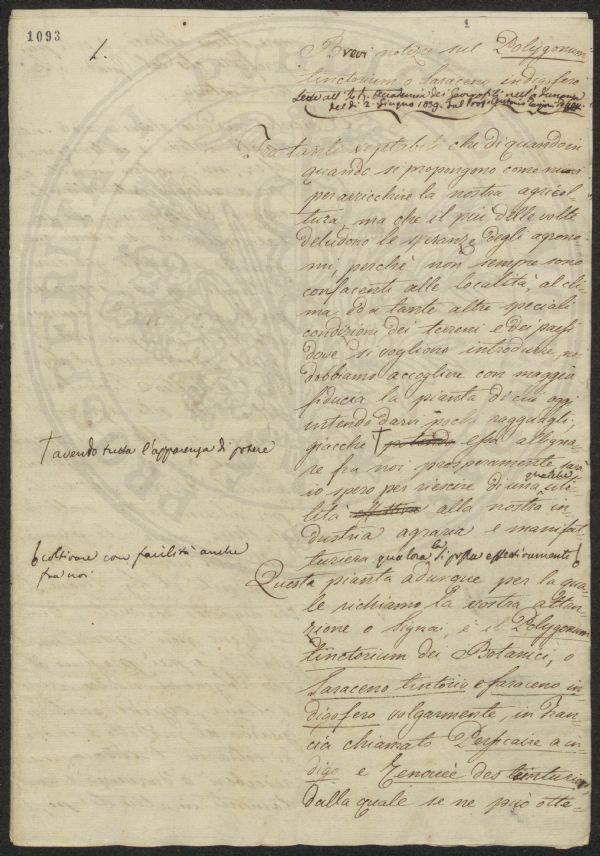 1093
1
1.
Brevi notizie sul Polygonum
tinctorium o Saraceno indigofero
Lette all' I. e R. Accademia dei Georgofili nell'adunanza
del dì 2. Giugno 1839. dal Prof. Antonio Targioni
Tra tanti vegetabili che di quando in
quando si propongono come nuovi
per arricchire la nostra agricol-
tura, ma che il più delle volte
deludono le speranze degli agrono-
mi, perchè non sempre sono
confacenti alle località, al cli-
ma, ed a tante altre speciali
condizioni dei terreni e dei paesi
dove si vogliono introdurre, noi
dobbiamo accogliere con maggior
fiducia la pianta di cui oggi
intendo darvi pochi ragguagli,
giacchè † essa alligna-
† avendo tutta l'apparenza di potere
re fra noi prosperamente, sarà
io spero per riescire di una qualche uti-
lità alla nostra in-
dustria agraria e manifat-
turiera qualora la si possa effettivamente
coltivare con facilità anche
fra noi
Questa pianta adunque per la qua-
le richiamo la vostra atten-
zione o Signori, è il Polygonum
tinctorium dei Botanici, o
Saraceno tintorio o saraceno in-
digofero volgarmente, in Fran-
cia chiamato Persicaire a in-
digo e Renouée des teinturiers,
dalla quale se ne può otte-